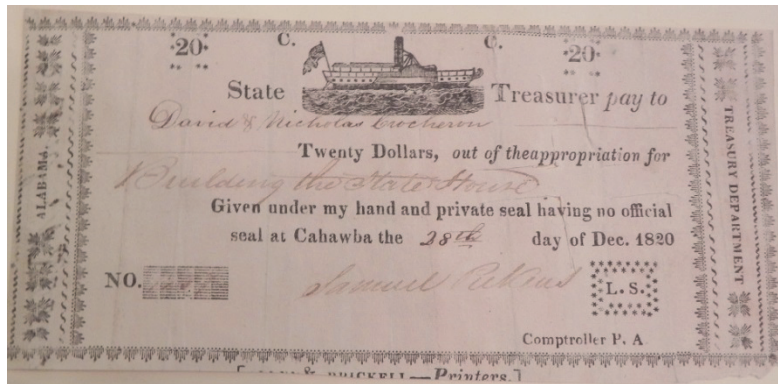 ·20· C. C. ·20·
State Treasurer pay to
David & Nicholas Crocheron
Twenty Dollars, out of theappropriation for
Building the State House
Given under my hand and private seal having no official
seal at Cahawba the 28th day of Dec. 1820
NO. Samuel Pickens L. S.
Comptroller P. A
& BRICKELL—Printers.]
ALABAMA.
TREASURY DEPARTMENT